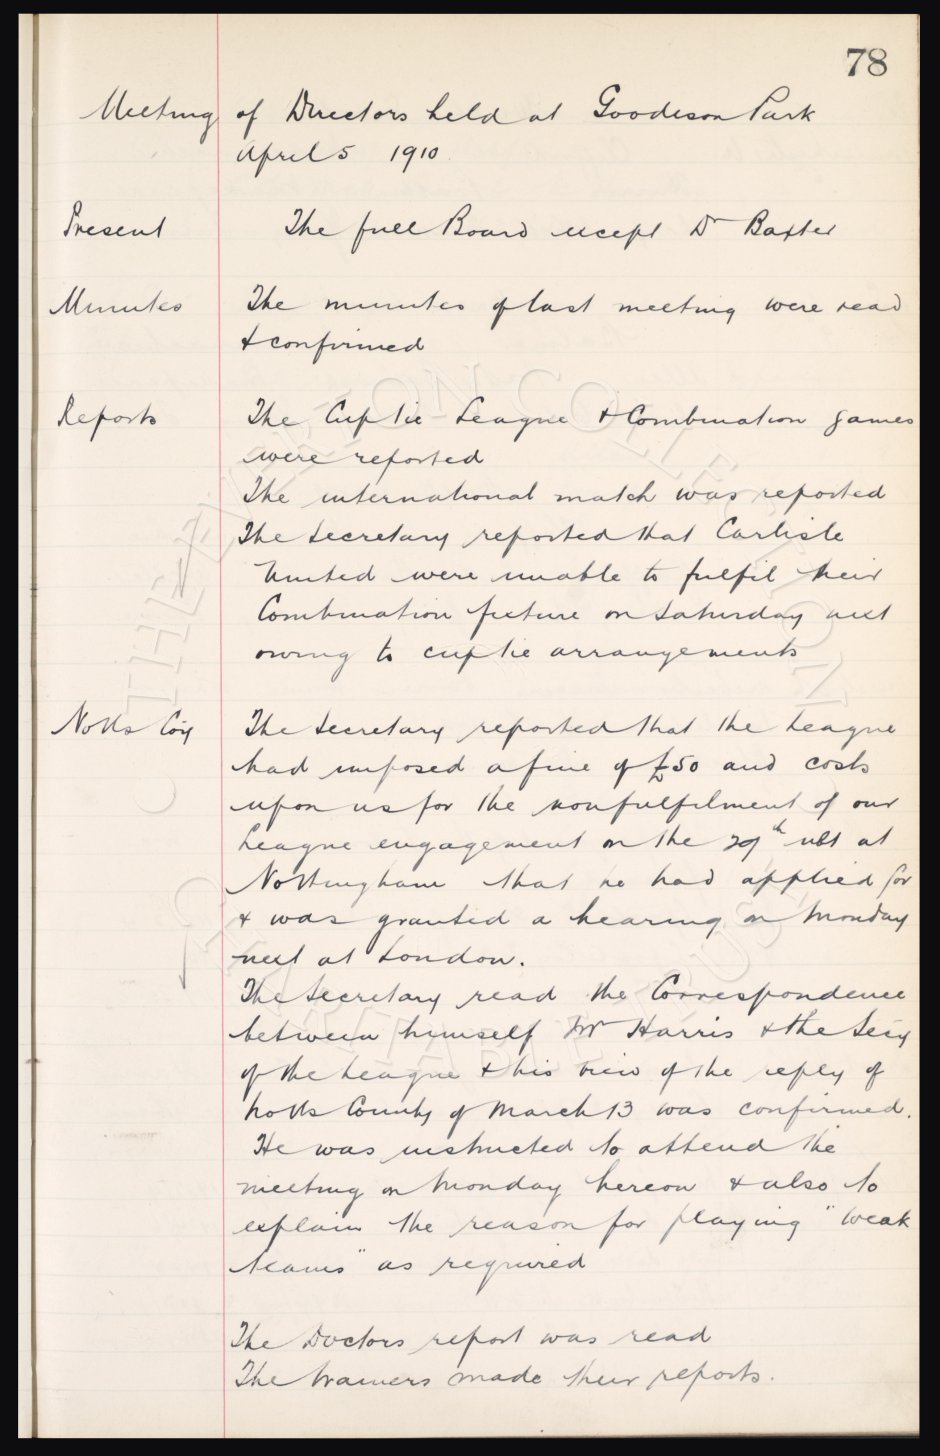 78
Meeting of Directors held at Goodison Park
April 5 1910
Present The full Board except Dr Baxter
Minutes The minutes of last meeting were read
& confirmed
Reports The Cup tie League & Combination games
were reported
The international match was reported
The Secretary reported that Carlisle
United were unable to fulfil their
Combination fixture on Saturday next
owing to cup tie arrangements
Notts Coy The Secretary reported that the League
had imposed a fine of £50 and costs
upon us for the nonfulfilment of our
League engagement on the 29th ult at
Nottingham that he had applied for
& was granted a hearing on Monday
next at London.
The Secretary read the Correspondence
between himself Mr Harris & the Secy
of the League & his view of the reply of
Notts County of March 13 was confirmed.
He was instructed to attend the
meeting on Monday hereon & also to
explain the reason for playing "weak
teams" as required
The Doctors report was read
The trainers made their reports.
© THE EVERTON COLLECTION
CHARITABLE TRUST